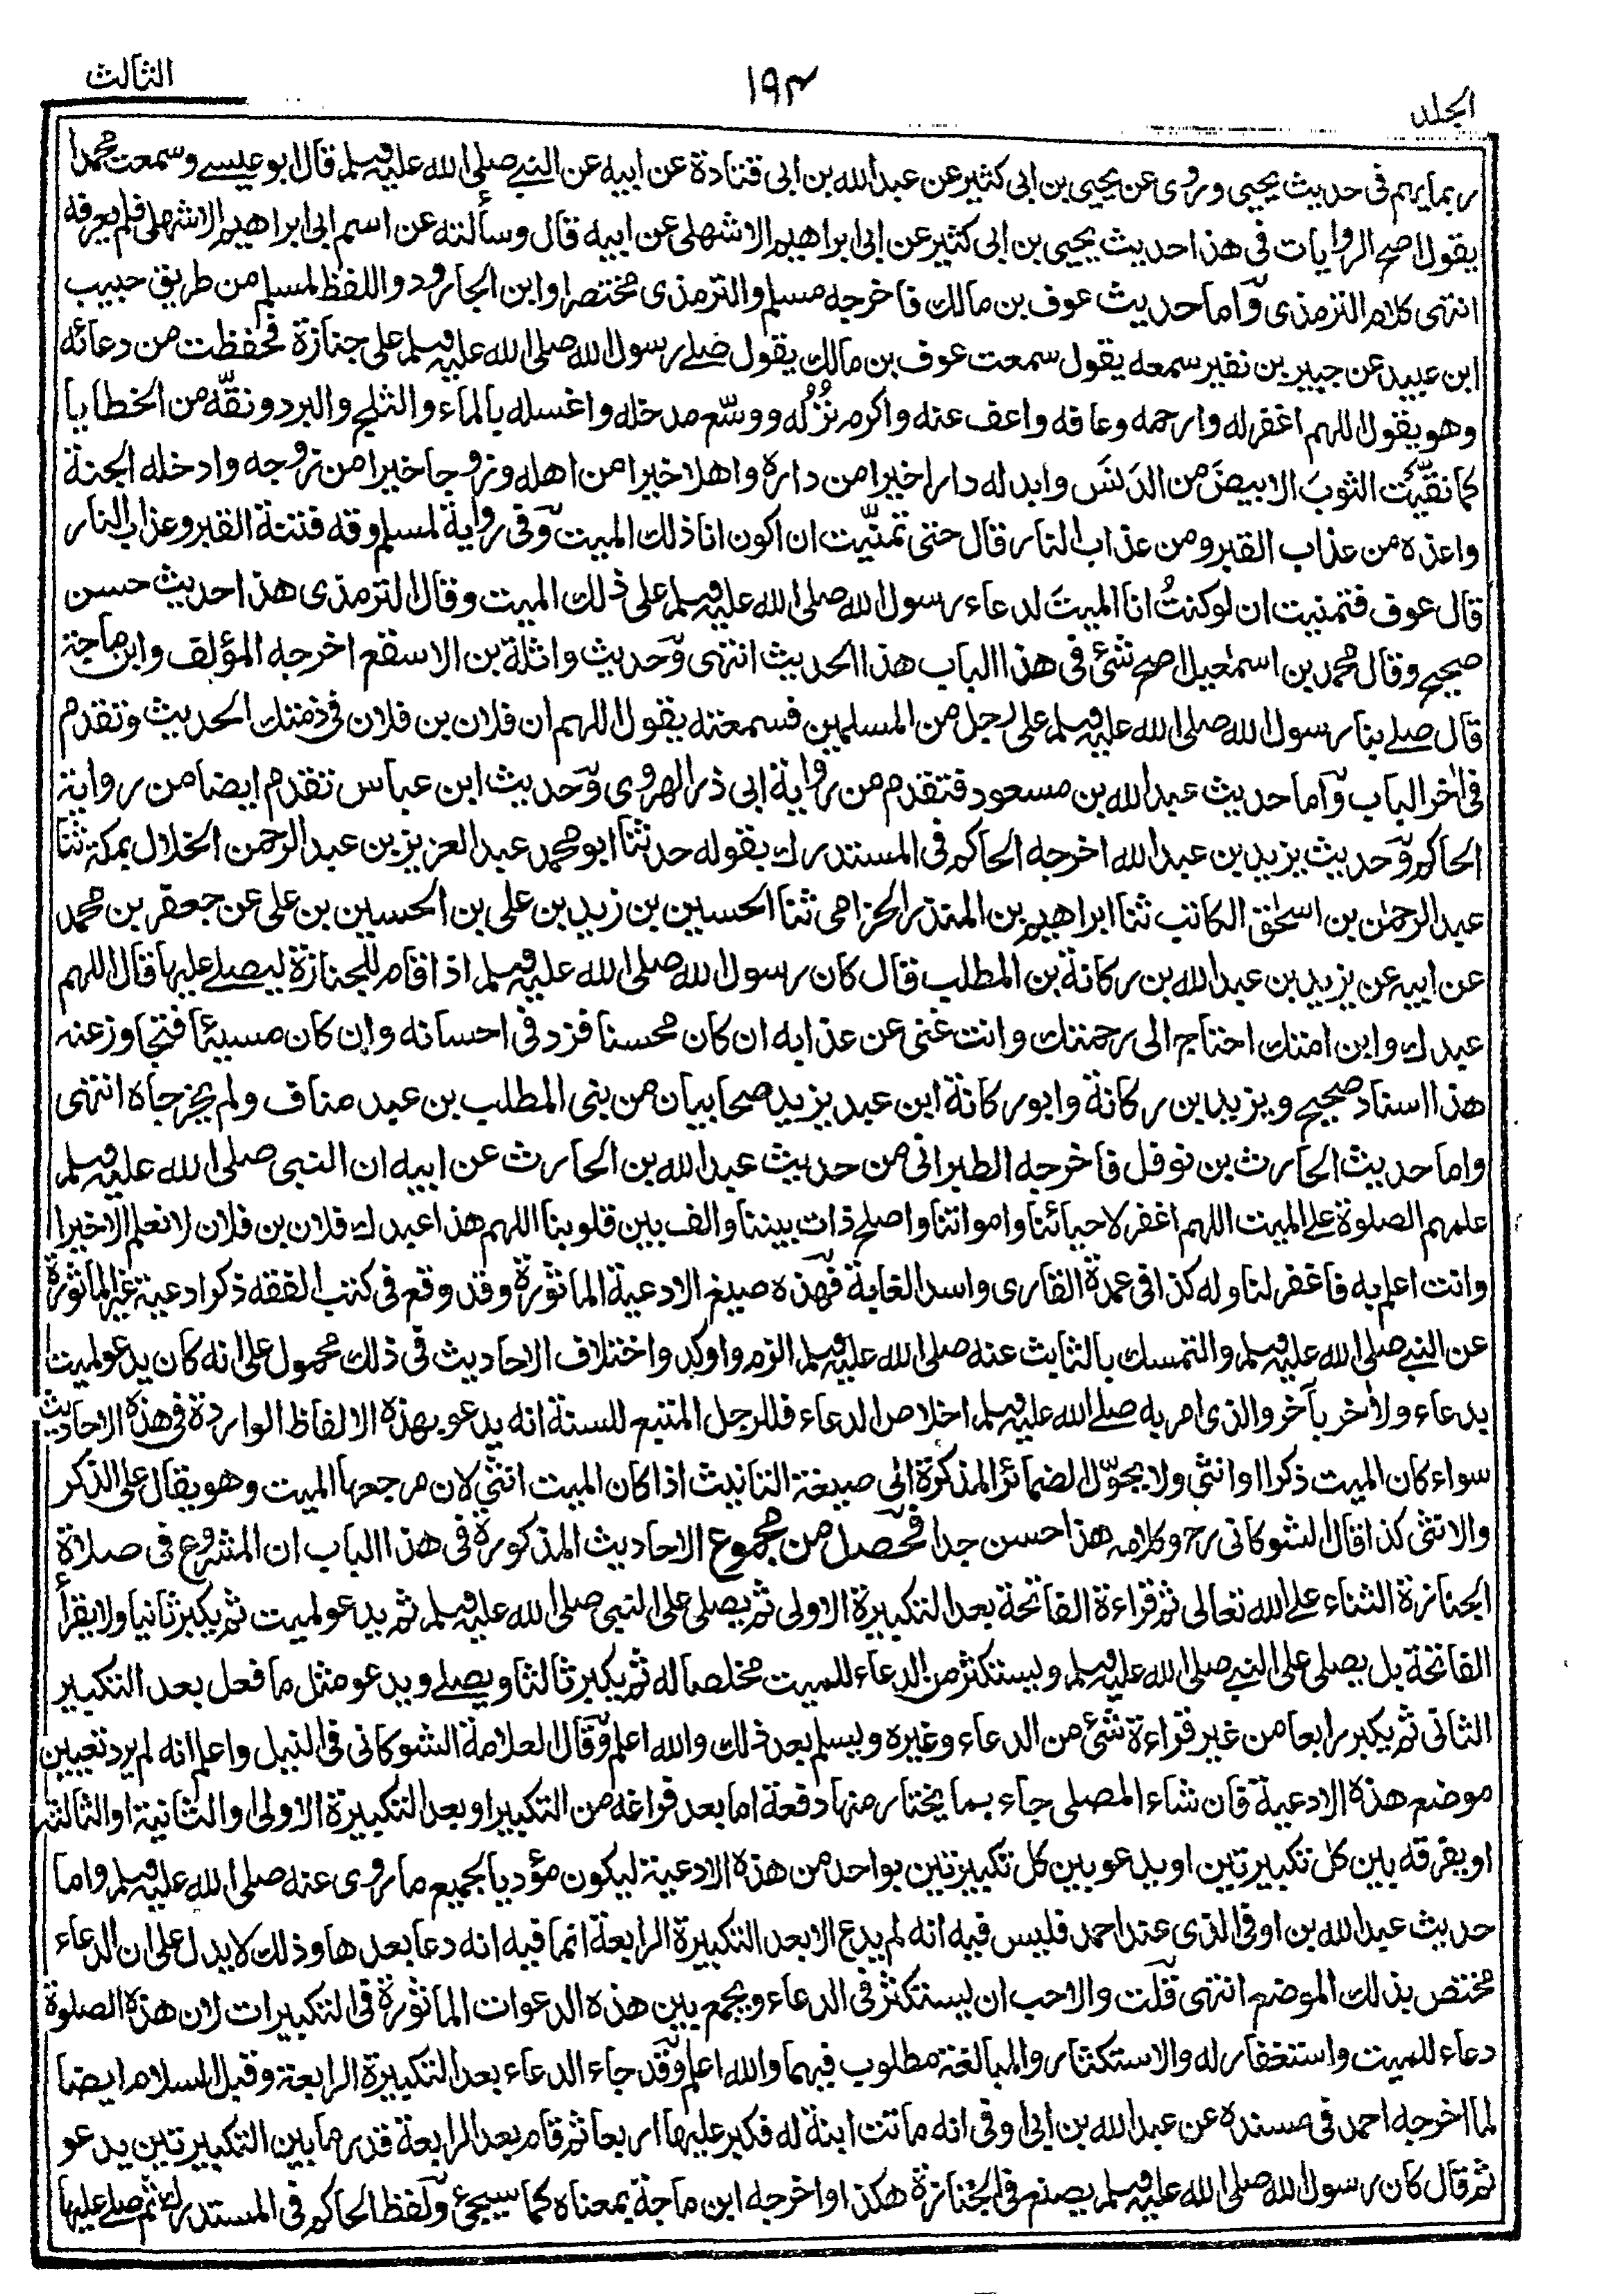 الجلد
١٩٣
الثالث
ربما يهم فى حديث يحيى وروى عن يحيى بن ابى كثير عن عبد الله بن ابى قتادة عن ابيه عن النبى صلى الله عليه وسلم قال ابو عيسى وسمعت محمدا
يقول اصح الروايات فى هذا حديث يحيى بن ابى كثير عن ابى ابراهيم الاشهلى عن ابيه قال وسألته عن اسم ابى ابراهيم الاشهلى فلم يعرفه
انتهى كلام الترمذى واما حديث عوف بن مالك فاخرجه مسلم والترمذى مختصرا وابن الجارود واللفظ لمسلم من طريق حبيب
ابن عبيد عن جبير بن نفير سمعه يقول سمعت عوف بن مالك يقول صلى رسول الله صلى الله عليه وسلم على جنازة فحفظت من دعائه
وهو يقول اللهم اغفر له وارحمه وعافه واعف عنه واكرم نُزُلَه ووسّع مدخله واغسله بالماء والثلج والبرد ونقّه من الخطايا
كما نقّيتَ الثوبَ الابيضَ من الدَنَسَ وابد له دارا خيرا من داره واهلا خيرا من اهله وزوجا خيرا من زوجه وادخله الجنة
واعذه من عذاب القبر ومن عذاب النار قال حتى تمنّيت ان اكون انا ذلك الميت وفى رواية لمسلم وقه فتنة القبر وعذاب النار
قال عوف فتمنيت ان لو كنتُ انا الميتَ لدعاء رسول الله صلى الله عليه وسلم على ذلك الميت وقال الترمذى هذا حديث حسن
صحيح وقال محمد بن اسمعيل اصح شئ فى هذا الباب هذا الحديث انتهى وحديث واثلة بن الاسقع اخرجه المؤلف وابن ماجة
قال صلى بنا رسول الله صلى الله عليه وسلم على رجل من المسلمين فسمعته يقول اللهم ان فلان بن فلان فى ذمتك الحديث وتقدم
فى اخر الباب واما حديث عبد الله بن مسعود فتقدم من رواية ابى ذر الهروى وحديث ابن عباس تقدم ايضا من رواية
الحاكم وحديث يزيد بن عبد الله اخرجه الحاكم فى المستدرك بقوله حدثنا ابو محمد عبد العزيز بن عبد الرحمن الخلال بمكة ثنا
عبد الرحمن بن اسحق الكاتب ثنا ابراهيم بن المنذر الحزامى ثنا الحسين بن زيد بن على بن الحسين بن على عن جعفر بن محمد
عن ابيه عن يزيد بن عبد الله بن ركانة بن المطلب قال كان رسول الله صلى الله عليه وسلم اذا قام للجنازة ليصلى عليها قال اللهم
عبدك وابن امتك احتاج الى رحمتك وانت غنى عن عذابه ان كان محسنا فزد فى احسانه وان كان مسيئا فتجاوز عنه
هذا اسناد صحيح ويزيد بن ركانة وابو ركانة ابن عبد يزيد صحابيان من بنى المطلب بن عبد مناف ولم يخرجاه انتهى
واما حديث الحارث بن نوفل فاخرجه الطبرانى من حديث عبد الله بن الحارث عن ابيه ان النبى صلى الله عليه وسلم
علمهم الصلوة على الميت اللهم اغفر لاحيائنا وامواتنا واصلح ذات بيننا والف بين قلوبنا اللهم هذا عبدك فلان بن فلان لا نعلم الا خيرا
وانت اعلم به فاغفر لنا وله كذا فى عمدة القارى واسد الغابة فهذه صيغ الادعية الماثورة وقد وقع فى كتب الفقه ذكر ادعية غير الماثورة
عن النبى صلى الله عليه وسلم والتمسك بالثابت عنه صلى الله عليه وسلم الزم واوكد واختلاف الاحاديث فى ذلك محمول على انه كان يدعو لميت
بدعاء ولاخر بآخر والذى امر به صلى الله عليه وسلم اخلاص الدعاء فللرجل المتبع للسنة انه يدعو بهذه الالفاظ الواردة فى هذه الاحاديث
سواء كان الميت ذكرا او انثى ولا يحوّل الضمائر المذكرة الى صيغة التانيث اذا كان الميت انثى لان مرجعها الميت وهو يقال على الذكر
والانثى كذا قال الشوكانى رح وكلامه هذا حسن جدا فحصل من مجموع الاحاديث المذكورة فى هذا الباب ان المشروع فى صلاة
الجنازة الثناء على الله تعالى ثم قراءة الفاتحة بعد التكبيرة الاولى ثم يصلى على النبى صلى الله عليه وسلم ثم يدعو لميت ثم يكبر ثانيا ولا يقرأ
الفاتحة بل يصلى على النبى صلى الله عليه وسلم ويستكثر من الدعاء للميت مخلصا له ثم يكبر ثالثا ويصلى ويدعو مثل ما فعل بعد التكبير
الثانى ثم يكبر رابعا من غير قراءة شئ من الدعاء وغيره ويسلم بعد ذلك والله اعلم وقال العلامة الشوكانى فى النيل واعلم انه لم يرد تعيين
موضع هذه الادعية فان شاء المصلى جاء بما يختار منها دفعة اما بعد فراغه من التكبير او بعد التكبيرة الاولى والثانية او الثالثة
او يفرقه بين كل تكبيرتين او يدعو بين كل تكبيرتين بواحد من هذه الادعية ليكون مؤديا بجميع ما روى عنه صلى الله عليه وسلم واما
حديث عبد الله بن اوفى الذى عند احمد فليس فيه انه لم يدع الا بعد التكبيرة الرابعة انما فيه انه دعا بعدها وذلك لا يدل على ان الدعاء
مختص بذلك الموضع انتهى قلت والاحب ان يستكثر فى الدعاء ويجمع بين هذه الدعوات الماثورة فى التكبيرات لان هذه الصلوة
دعاء للميت واستغفار له والاستكثار والمبالغة مطلوب فيهما والله اعلم وقد جاء الدعاء بعد التكبيرة الرابعة وقبل السلام ايضا
لما اخرجه احمد فى مسنده عن عبد الله بن ابى اوفى انه ماتت ابنة له فكبر عليها اربعا ثم قام بعد الرابعة قدر ما بين التكبيرتين يدعو
ثم قال كان رسول الله صلى الله عليه وسلم يصنع فى الجنازة هكذا واخرجه ابن ماجة بمعناه كما سيجئ ولفظ الحاكم فى المستدرك ثم صلى عليها